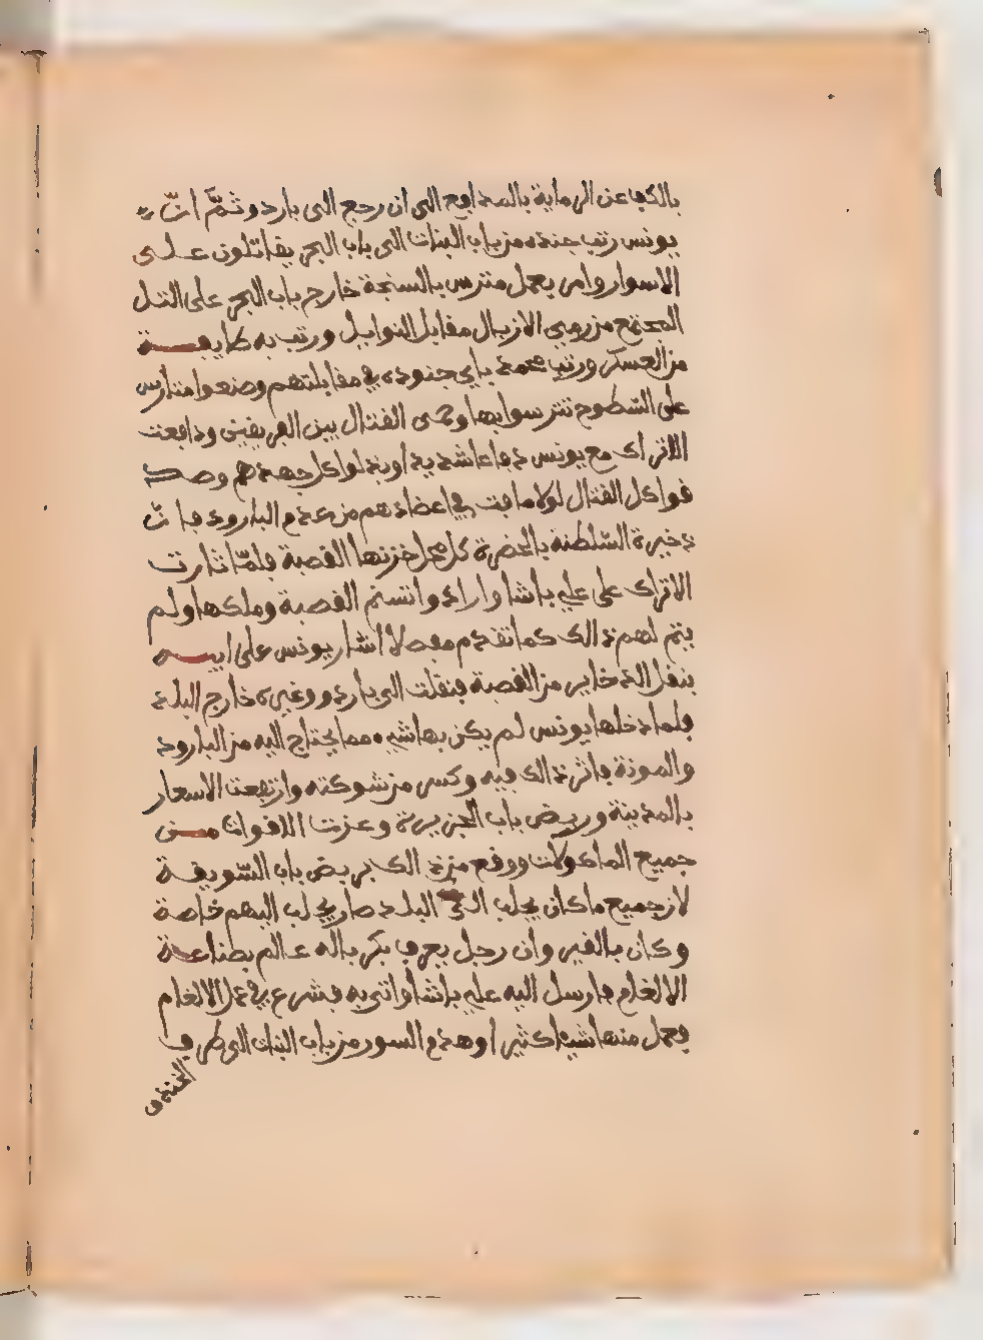 بالكف عن الرماية بالمدافع الى ان رجع الى باردو ثمّ انّ
يونس رتب جنده من باب البنات الى باب البحر يقاتلون على
الاسوار وامر بعمل مترس بالسنجة خارج باب البحر على التل
المجتمع من رمي الازبال مقابل النوايل ورتب به طايفة
من العسكر ورتب محمد باي جنوده في مقابلتهم وصنعوا متارس
على السّطوح تترسوا بها وحمى القتال بين الفريقين ودافعت
الاتراك مع يونس دفاعا شديدا وبذلوا كل جهدهم وصدـ
قوا كل القتال لولا ما فت في اعضادهم من عدم البارود فانّ
ذخيرة السّلطنة بالحضرة كل محل خزنها القصبة فلمّا ثارت
الاتراك على علي باشا وارادوا تسنم القصبة وملكها ولم
يتم لهم ذالك كما تقدم مفصلا اشار يونس على ابيه
بنقل الذخاير من القصبة فنقلت الى باردو وغيره خارج البلد
فلما دخلها يونس لم يكن بها شيء مما يحتاج اليه من البارود
والمونة فاثر ذالك فيه وكسر من شوكته وارتفعت الاسعار
بالمدينة وربض باب الجزيرة وعزت الاقوات من
جميع الماكولات ووقع من ذالك بربض باب السّويقة
لان جميع ما كان يجلب الى البلد صار يجلب اليهم خاصة
وكان بالقيروان رجل يعرف بكر باله عالم بصناعة
الالغام فارسل اليه علي باشا واتى به فشرع في عمل الالغام
فعمل منها شيئا كثيرا وهدم السور من باب البنات الى طرف
الخندق